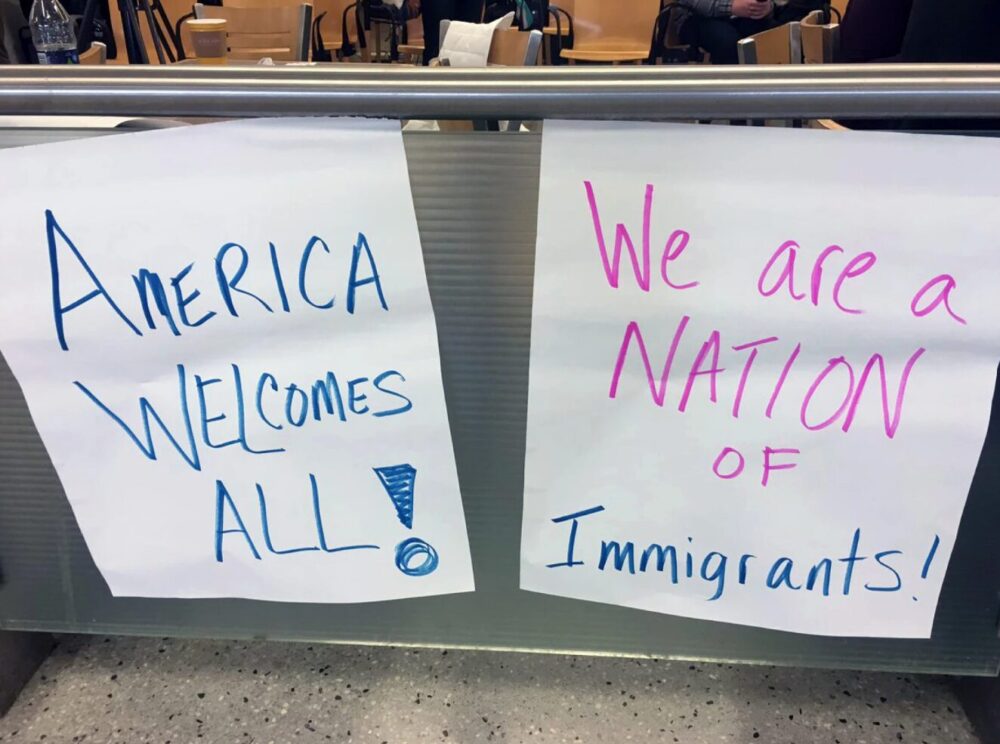 AMERICA
WELCOMES
ALL!
We are a
NATION
OF
Immigrants!